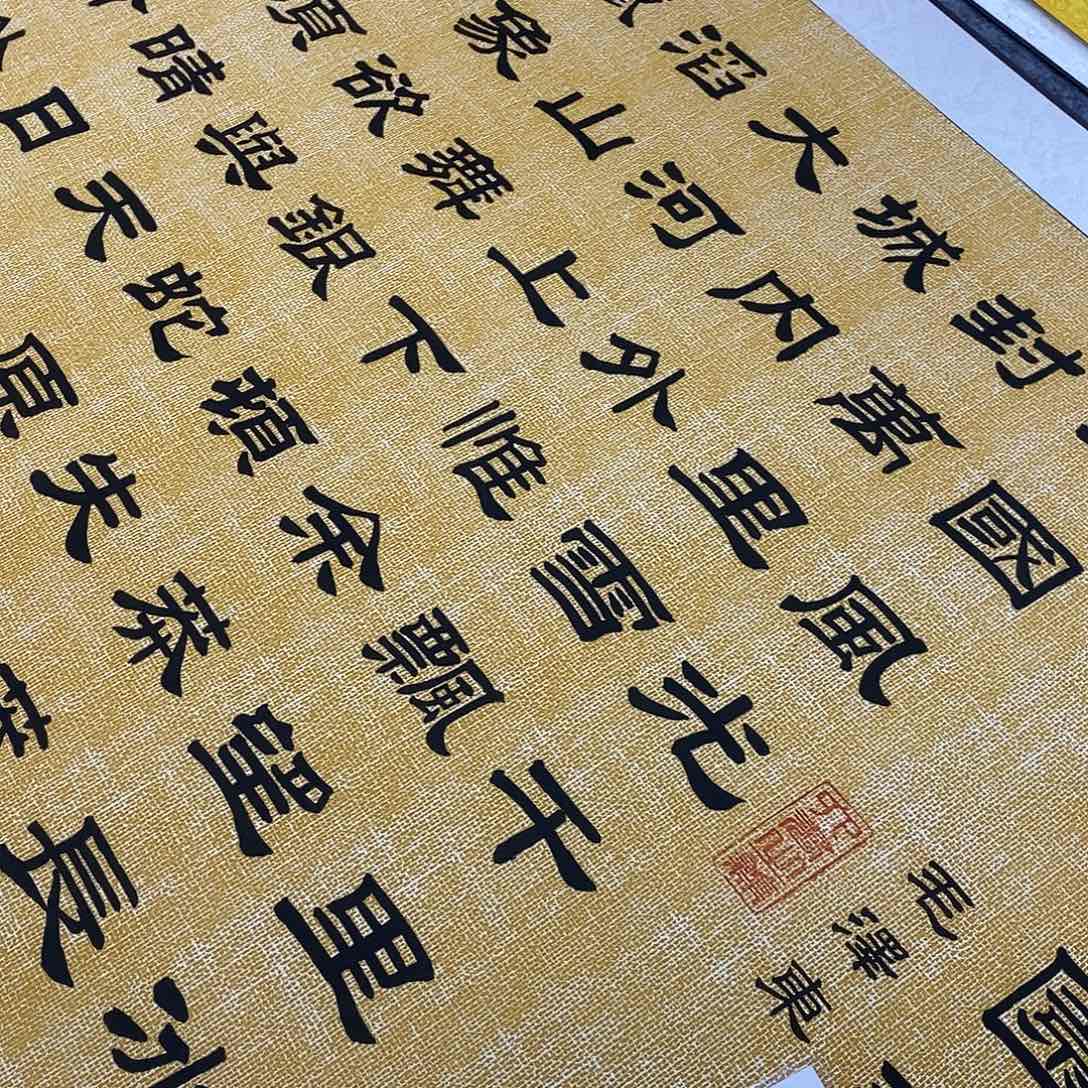 國風光千里冰
封萬里雪飄望長
城内外惟余莽莽
大河上下頓失
滔山舞銀蛇原
象欲與天
須晴日
毛澤東
國